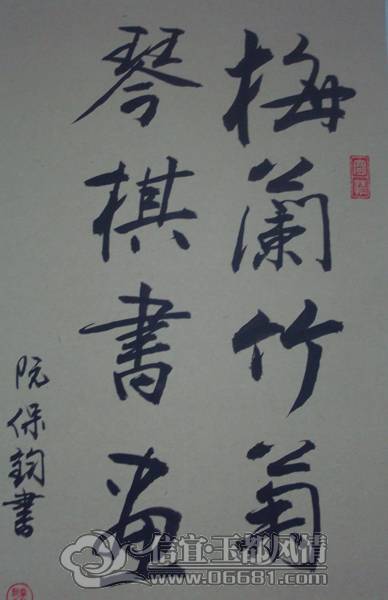 梅蘭竹菊
琴棋書画
阮保鈞書
信宜·玉都风情
www.06681.com